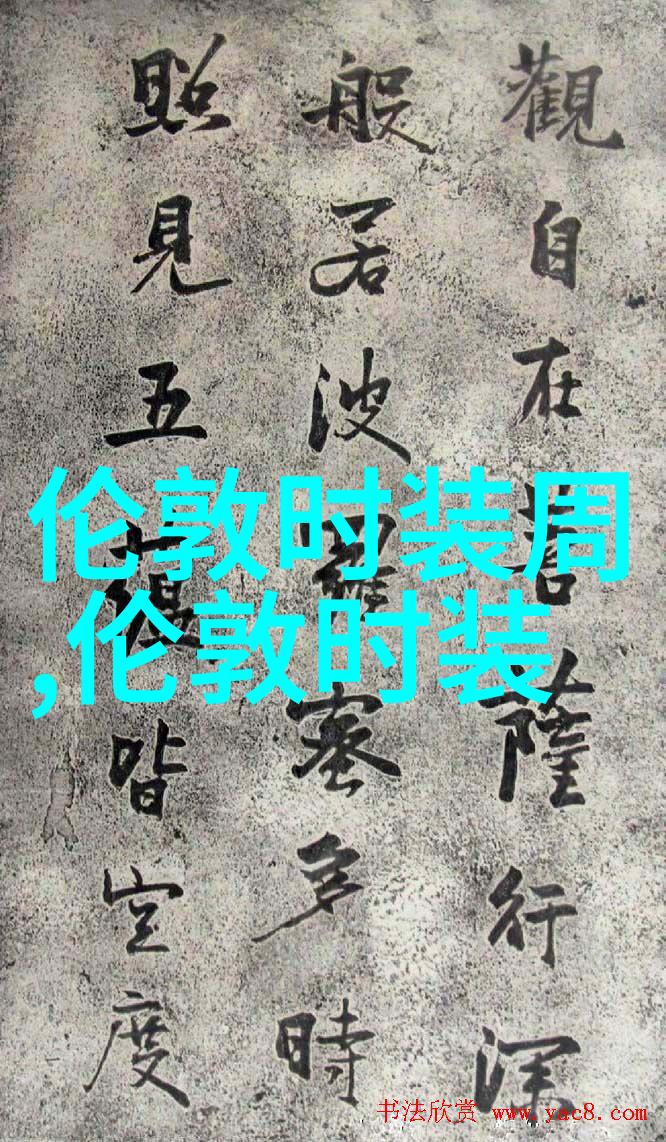 觀自在菩薩行深
般若波羅蜜多時
照見五蘊皆空度
伦敦时装周
,伦敦时装
书法欣赏 www.yac8.com